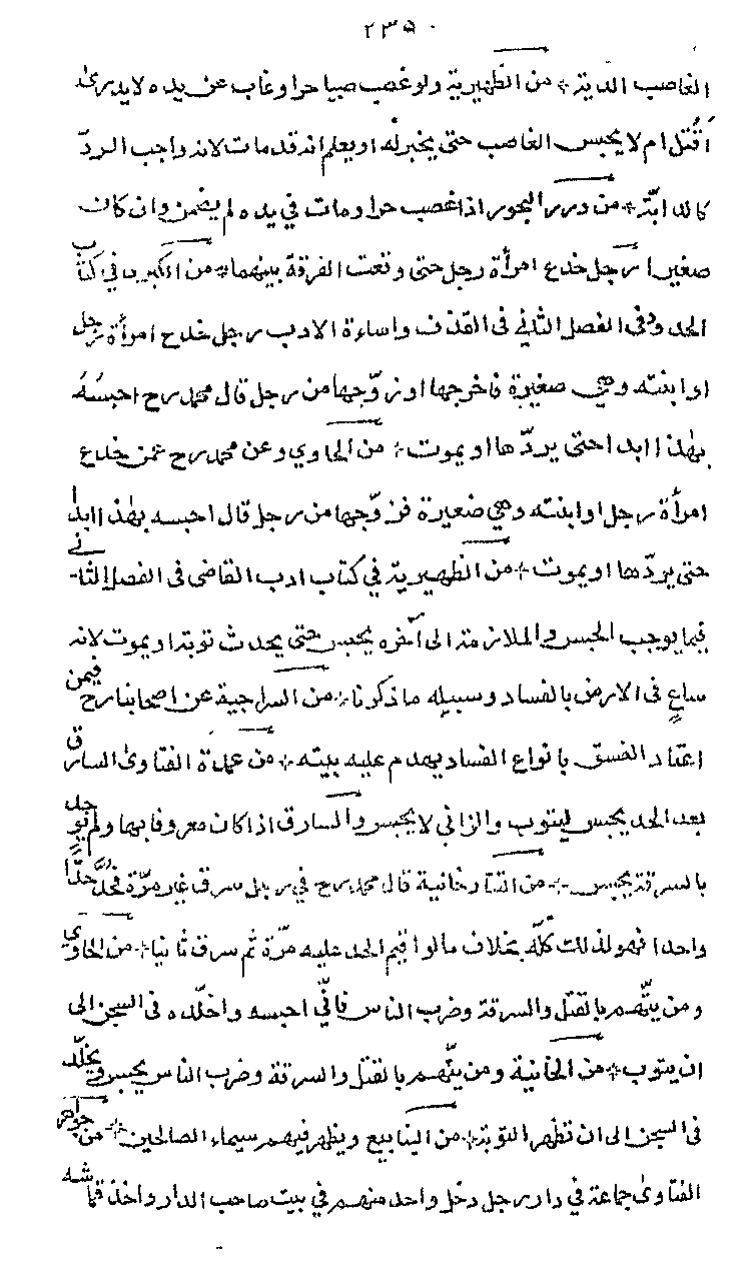 ٢٣٥
الغاصب الدية * من الظهيرية ولو غصب صبيا حرا وغاب عن يده لا يدرى
أقُتل ام لا يحبس الغاصب حتى يخبر له او يعلم انه قد مات لانه واجب الردّ
كالدابّة * من درر البحور اذا غصب حرا ومات في يده لم يضمن وان كان
صغيرا رجل خدع امرأة رجل حتى وقعت الفرقة بينهما * من الكبرى في كتاب
الحدود في الفصل الثاني فى القذف واساءة الادب رجل خدع امرأة رجل
او ابنته وهي صغيرة فاخرجها او زوّجها من رجل قال محمد رح احبسُهُ
بهٰذا ابدا حتى يردّها او يموت * من الحاوي وعن محمد رح عمن خدع
امرأة رجل او ابنته وهي صغيرة فزوّجها من رجل قال احبسه بهٰذا ابدا
حتى يردّها او يموت * من الظهيرية في كتاب ادب القاضى فى الفصل الثاني
فيما يوجب الحبس والملازمة الى آخره يحبس حتى يحدث توبة او يموت لانه
ساعٍ فى الارض بالفساد وسبيله ما ذكرنا * من السراجية عن اصحابنا رح فيمن
اعتاد الفسق بانواع الفساد يهدم عليه بيته * من عمدة الفتاوىٰ السارق
بعد الحد يحبس ليتوب والزانى لا يحبس والسارق اذا كان معروفا بها ولم يوجد
بالسرقة يحبس * من التتارخانية قال محمد رح في رجل سرق غير مرّة فحُدَّ حدًّا
واحدا فهو لذلك كلّه بخلاف ما لو اقيم الحد عليه مرّة ثم سرق ثانيا * من الحاوي
ومن يتّهم بالقتل والسرقة وضرب الناس فانّي احبسه واخلّده فى السجن الى
ان يتوب * من الخانية ومن يتّهم بالقتل والسرقة وضرب الناس يحبس ويخلّد
فى السجن الى ان تظهر التوبة * من الينابيع ويظهر فيهم سيماء الصالحين * من جواهر
الفتاوىٰ جماعة في دار رجل دخل واحد منهم في بيت صاحب الدار واخذ قماشه